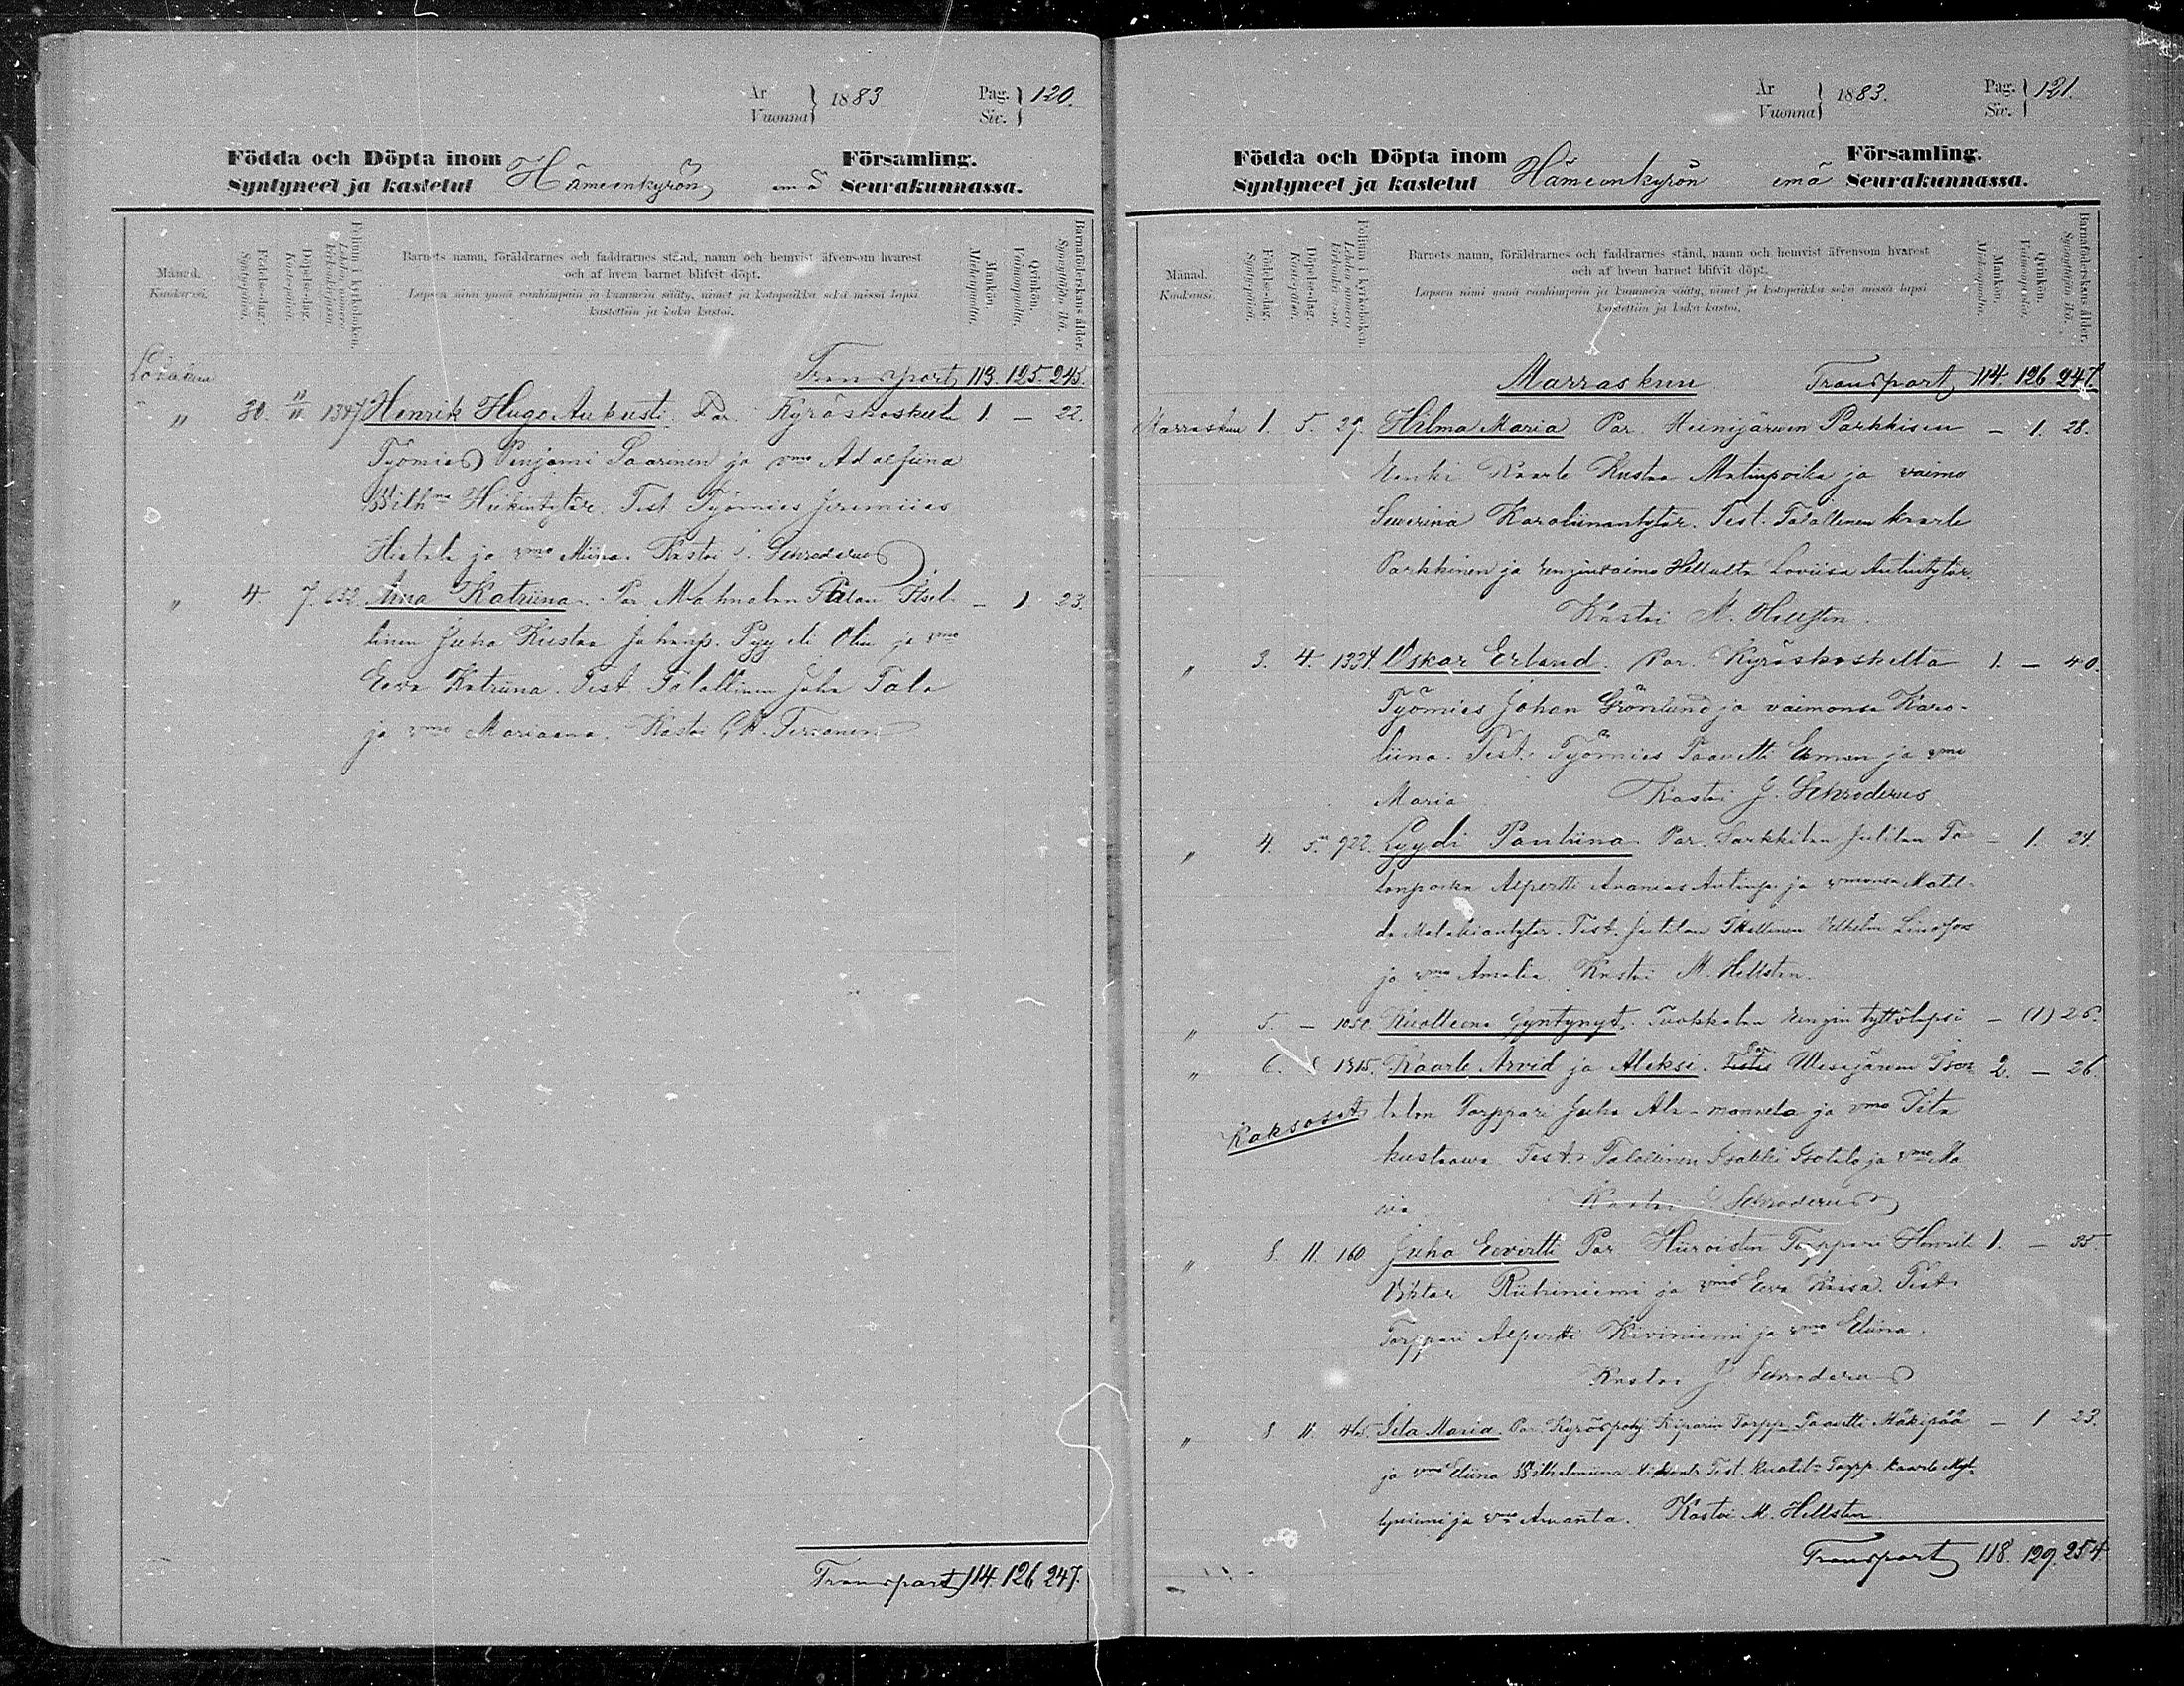 År
Vuonna } 1883
Pag.
Siv. } 120.
Födda och Döpta inom
Syntyneet ja kastetut
Hämeenkyrön emä
Församling.
Seurakunnassa.
Månad.
Kuukausi.
Födelse-dag.
Syntypäivä.
Döpelse-dag.
Kastepäivä.
Folium i kyrkoboken.
Lehden numero kirkonkirjassa.
Barnets namn, föräldrarnes och faddrarnes stånd, namn och hemvist äfvensom hvarest
och af hvem barnet blifvit döpt.
Lapsen nimi ynnä vanhimpain ja kummein sääty, nimet ja kotopaikka sekä missä lapsi
kastettiin ja kuka kastoi.
Mankön.
Miehenpuolta.
Qvinkön.
Vaimonpuolta.
Barnaföderskans ålder.
Synnyttäjän ikä.
Lokakuu
Transport 113. 125. 245.
" 30. 11/11 1347 Henrik Hugo Aukusti. Par. Kyröskoskelta 1 — 22.
Työmies Penjami Saarinen ja vmo Adalfiina
Wilhma Heikintytär. Test Työmies Jeremiias
Hietala ja vmo Miina. Kastoi J. Schroderus
" 4. 7. 652. Aina Katriina. Par. Mahnalan Palan Itsel- — 1 23.
linen Juho Kustaa Juhanp. Pyy eli Olin ja vmo
Eeva Katriina. Test Talallinen Juha Tala
ja vmo Mariaana. Kastoi Terranen
Transport 114. 126 247.
År
Vuonna } 1883.
Pag.
Siv. } 121.
Födda och Döpta inom
Syntyneet ja kastetut
Hämeenkyrön emä
Församling.
Seurakunnassa.
Månad.
Kuukausi.
Födelse-dag.
Syntypäivä.
Döpelse-dag.
Kastepäivä.
Folium i kyrkoboken.
Lehden numero kirkonkirjassa.
Barnets namn, föräldrarnes och faddrarnes stånd, namn och hemvist äfvensom hvarest
och af hvem barnet blifvit döpt.
Lapsen nimi ynnä vanhimpain ja kummein sääty, nimet ja kotopaikka sekä missä lapsi
kastettiin ja kuka kastoi.
Mankön.
Miehenpuolta.
Qvinkön.
Vaimonpuolta.
Barnaföderskans ålder.
Synnyttäjän ikä.
Marraskuu Transport 114. 126 247.
Marraskuu 1. 5. 29. Hilma Maria Par. Heinijärven Parkkisen — 1. 28.
Renki Kaarle Kustaa Matinpoika ja vaimo
Severina Karoliinantytär. Test. Talallinen Kaarle
Parkkinen ja renginvaimo Loviisa Antintytär.
Kastoi M. Hellsten.
" 3. 4. 1334. Oskar Erland. Par. Kyröskoskelta 1. — 40.
Työmies Johan Grönlund ja vaimonsa Karo-
liina. Test. Työmies Taavetti Ekman ja vmo
Maria Kastoi J. Schroderus
" 4. 5. 922. Lyydi Pauliina. Par. Sarkkilan Julilan Ta- — 1. 24.
lonpoika Alpertti Ananias Antinp. ja vmonsa Matil-
da Malakiantytär. Test. Talallinen Vilhelm Lindfors
ja vmo Amalia. Kastoi M. Hellsten.
" 5. — 1050. Kuolleena Syntynyt. Tuokkolan rengin tyttölapsi — (1) 26.
" 6. 1315. Kaarle Arvid ja Aleksi. Par Ulvajärven Iso- 2. — 26.
Kaksoset
talon Torppari Juha Ala-mannela ja vmo Iita
kustaava. Test. Talallinen Iisakki Isotalo ja vmo Ma
ria Kastoi J. Schroderus
" 8. 11. 160 Juho Eevertti Par. Hiiroisten Torppari Henrik 1. — 35.
Vihtor Riihiniemi ja vmo Eeva Kaisa. Test
Torppari Alpertti Kiviniemi ja vmo Eliina.
Kastoi J. Schroderus
" 8. 11. 465. Iita Maria. Par. Kyröspohj. Kiparin Torpp. Taavetti Mäkipää — 1 23.
ja vmo Eliina Wilhelmiina Test. Torpp. Kaarle Myl-
lyniemi ja vmo Amanta. Kastoi M. Hellsten
Transport 118. 129. 254.